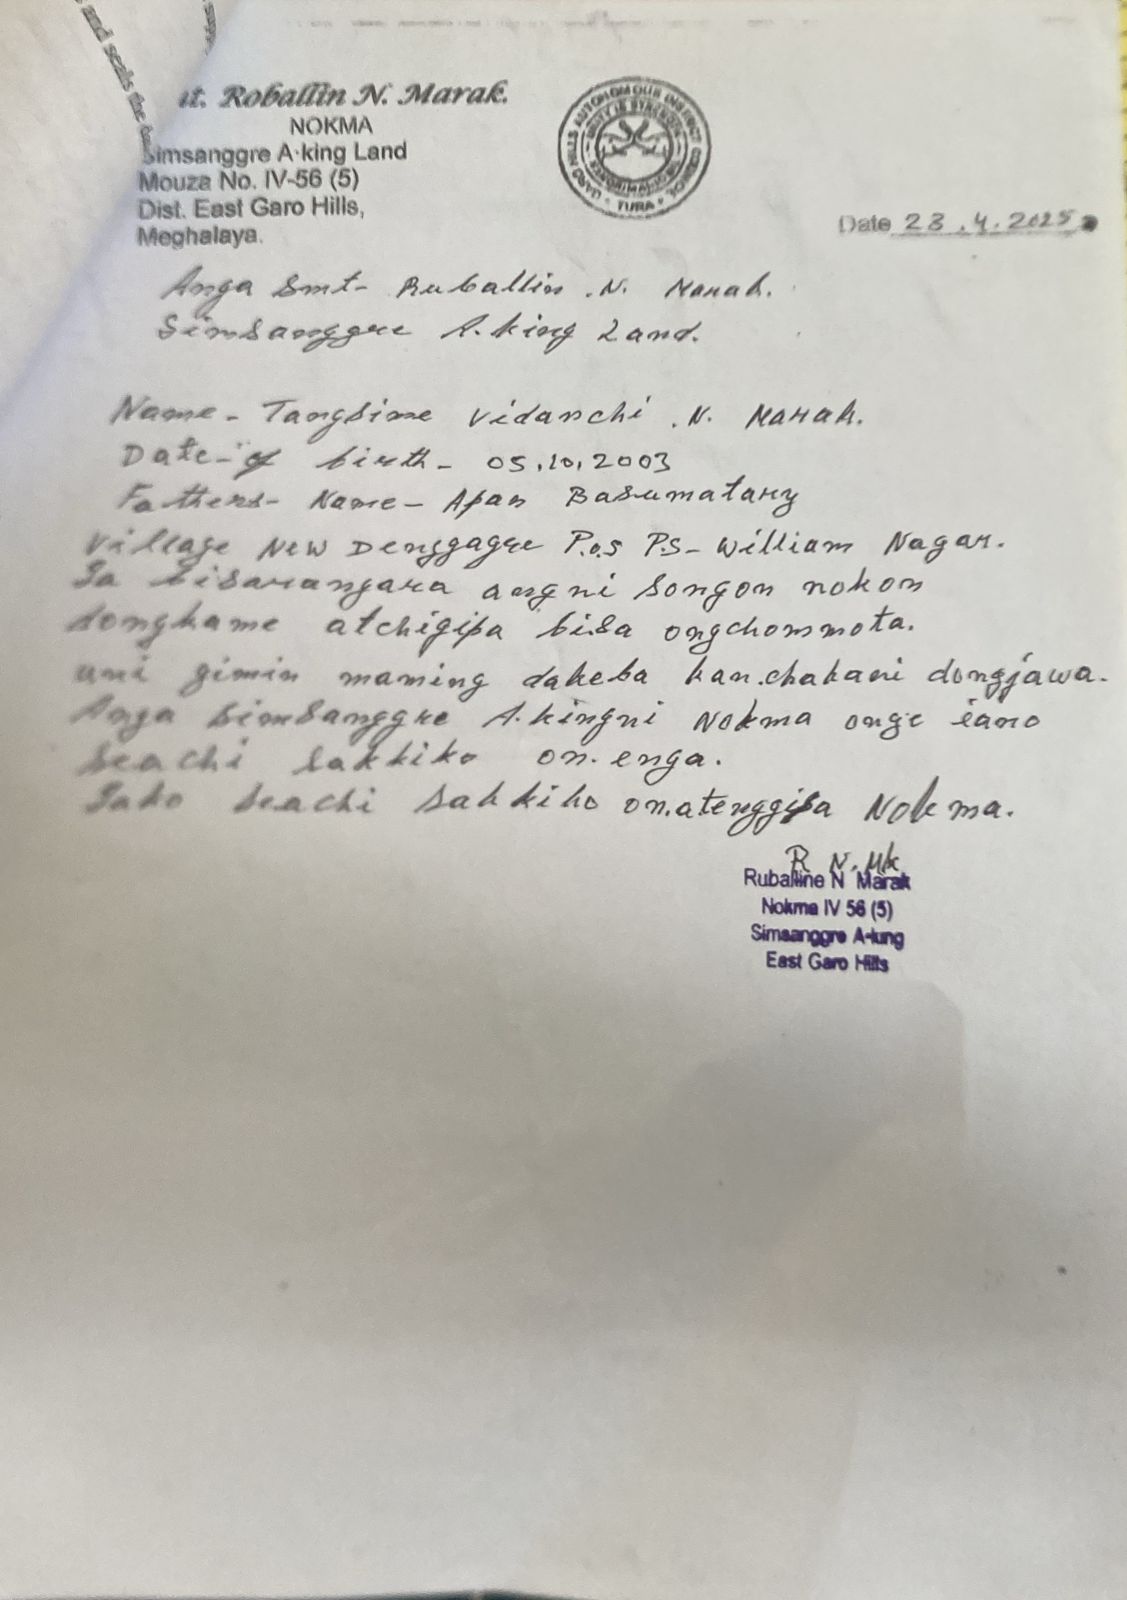 and seals the
st. Roballin N. Marak.
NOKMA
Simsanggre A·king Land
Mouza No. IV-56 (5)
Dist. East Garo Hills,
Meghalaya.
GARO HILLS AUTONOMOUS DISTRICT COUNCIL
UNITY IS STRENGTH
TURA
Date 23.4.2025
Anga Smt- Ruballin .N. Marak.
Simsanggre A.king Land.
Name - Tangsime Vidanchi .N. Marak.
Date-of birth - 05.10.2003
Fathers- Name - Apan Basumatary
Village New Denggagre P.o.s P.S- William Nagar.
Ia bisarangara angni songon nokon
dongkame atchigipa bisa ongchommota.
uni gimin maming dakeba kan.chakani dongjawa.
Anga Simsanggre A.kingni Nokma onge iano
seachi sakkiko on.enga.
Iako seachi sakkiko on.atenggipa Nokma.
R N. Mk
Ruballine N Marak
Nokma IV 56 (5)
Simsanggre A-kung
East Garo Hills